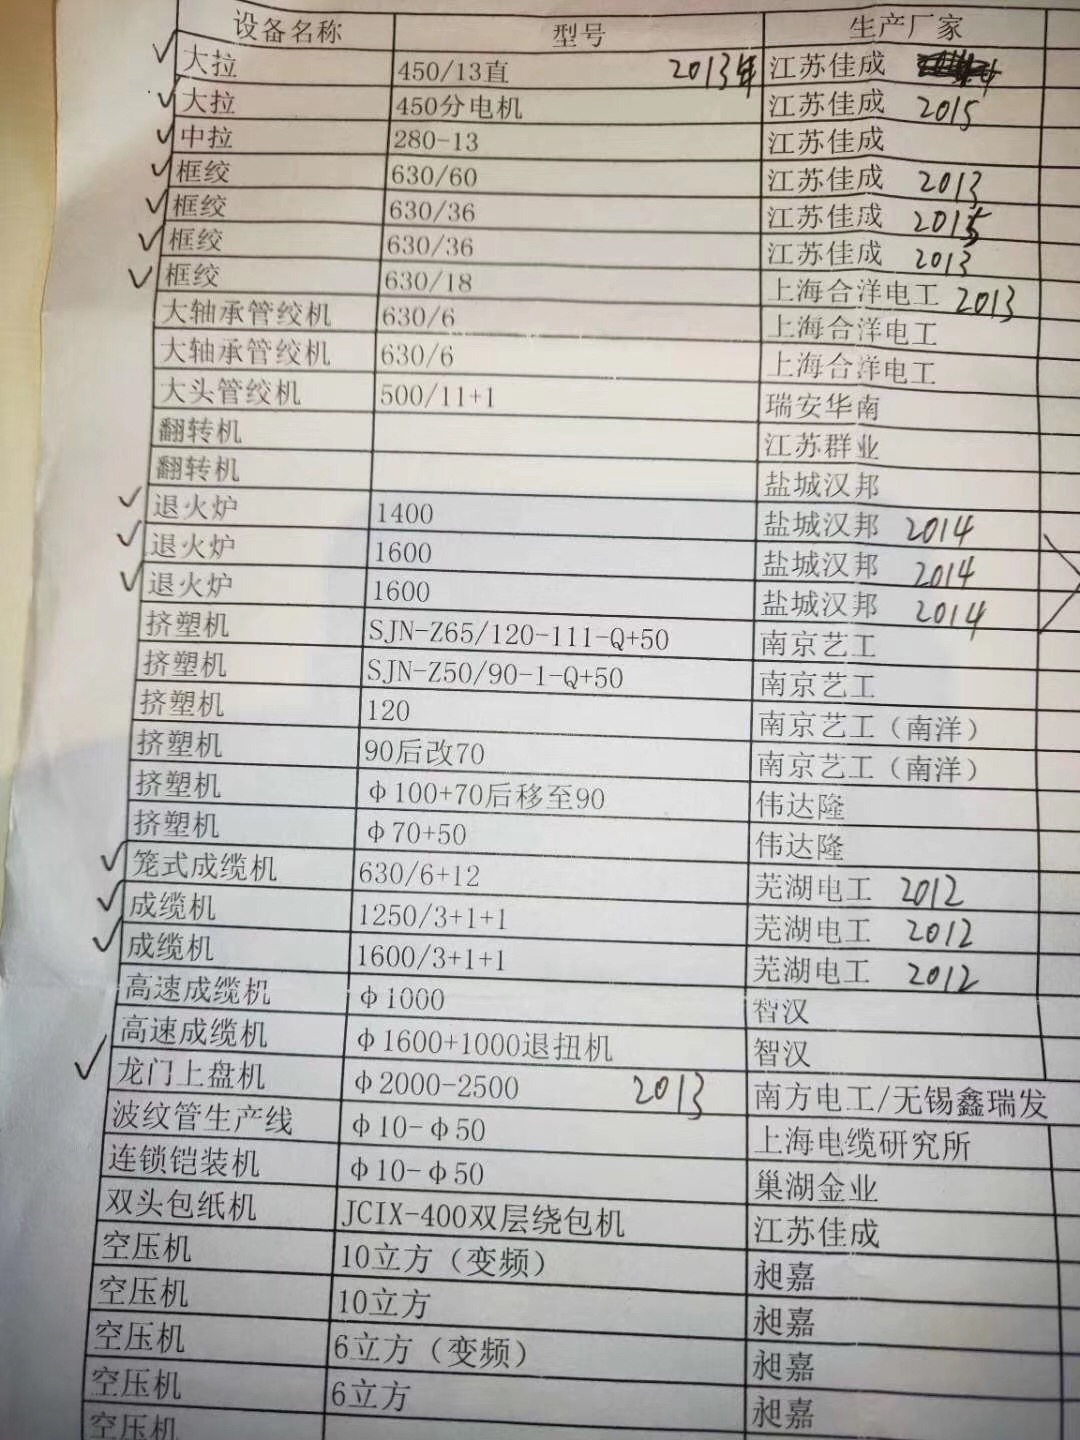 设备名称 型号 生产厂家
大拉 450/13直 2013年 江苏佳成
大拉 450分电机 江苏佳成 2015
中拉 280-13 江苏佳成
框绞 630/60 江苏佳成 2013
框绞 630/36 江苏佳成 2015
框绞 630/36 江苏佳成 2013
框绞 630/18 上海合洋电工 2013
大轴承管绞机 630/6 上海合洋电工
大轴承管绞机 630/6 上海合洋电工
大头管绞机 500/11+1 瑞安华南
翻转机 江苏群业
翻转机 盐城汉邦
退火炉 1400 盐城汉邦 2014
退火炉 1600 盐城汉邦 2014
退火炉 1600 盐城汉邦 2014
挤塑机 SJN-Z65/120-111-Q+50 南京艺工
挤塑机 SJN-Z50/90-1-Q+50 南京艺工
挤塑机 120 南京艺工（南洋）
挤塑机 90后改70 南京艺工（南洋）
挤塑机 φ100+70后移至90 伟达隆
挤塑机 φ70+50 伟达隆
笼式成缆机 630/6+12 芜湖电工 2012
成缆机 1250/3+1+1 芜湖电工 2012
成缆机 1600/3+1+1 芜湖电工 2012
高速成缆机 φ1000 智汉
高速成缆机 φ1600+1000退扭机 智汉
龙门上盘机 φ2000-2500 2013 南方电工/无锡鑫瑞发
波纹管生产线 φ10-φ50 上海电缆研究所
连锁铠装机 φ10-φ50 巢湖金业
双头包纸机 JCIX-400双层绕包机 江苏佳成
空压机 10立方（变频） 昶嘉
空压机 10立方 昶嘉
空压机 6立方（变频） 昶嘉
空压机 6立方 昶嘉
空压机